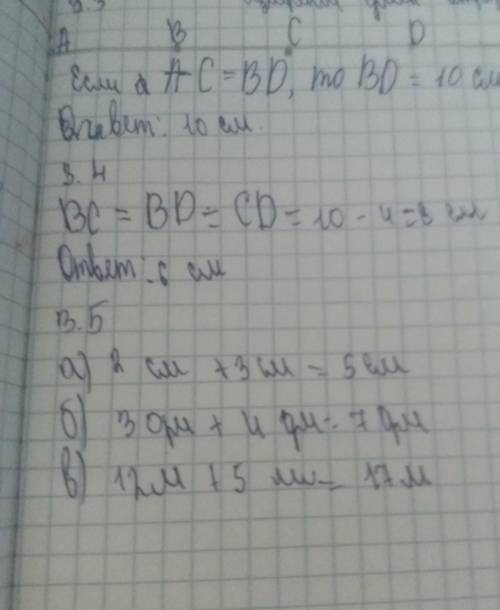 3.3
A B C D
Если AC = BD, то BD = 10 см
Ответ: 10 см.
3.4
BC = BD = CD = 10 - 4 = 6 см
Ответ: 6 см
3.5
а) 2 см + 3 см = 5 см
б) 3 дм + 4 дм = 7 дм
в) 12 м + 5 м = 17 м